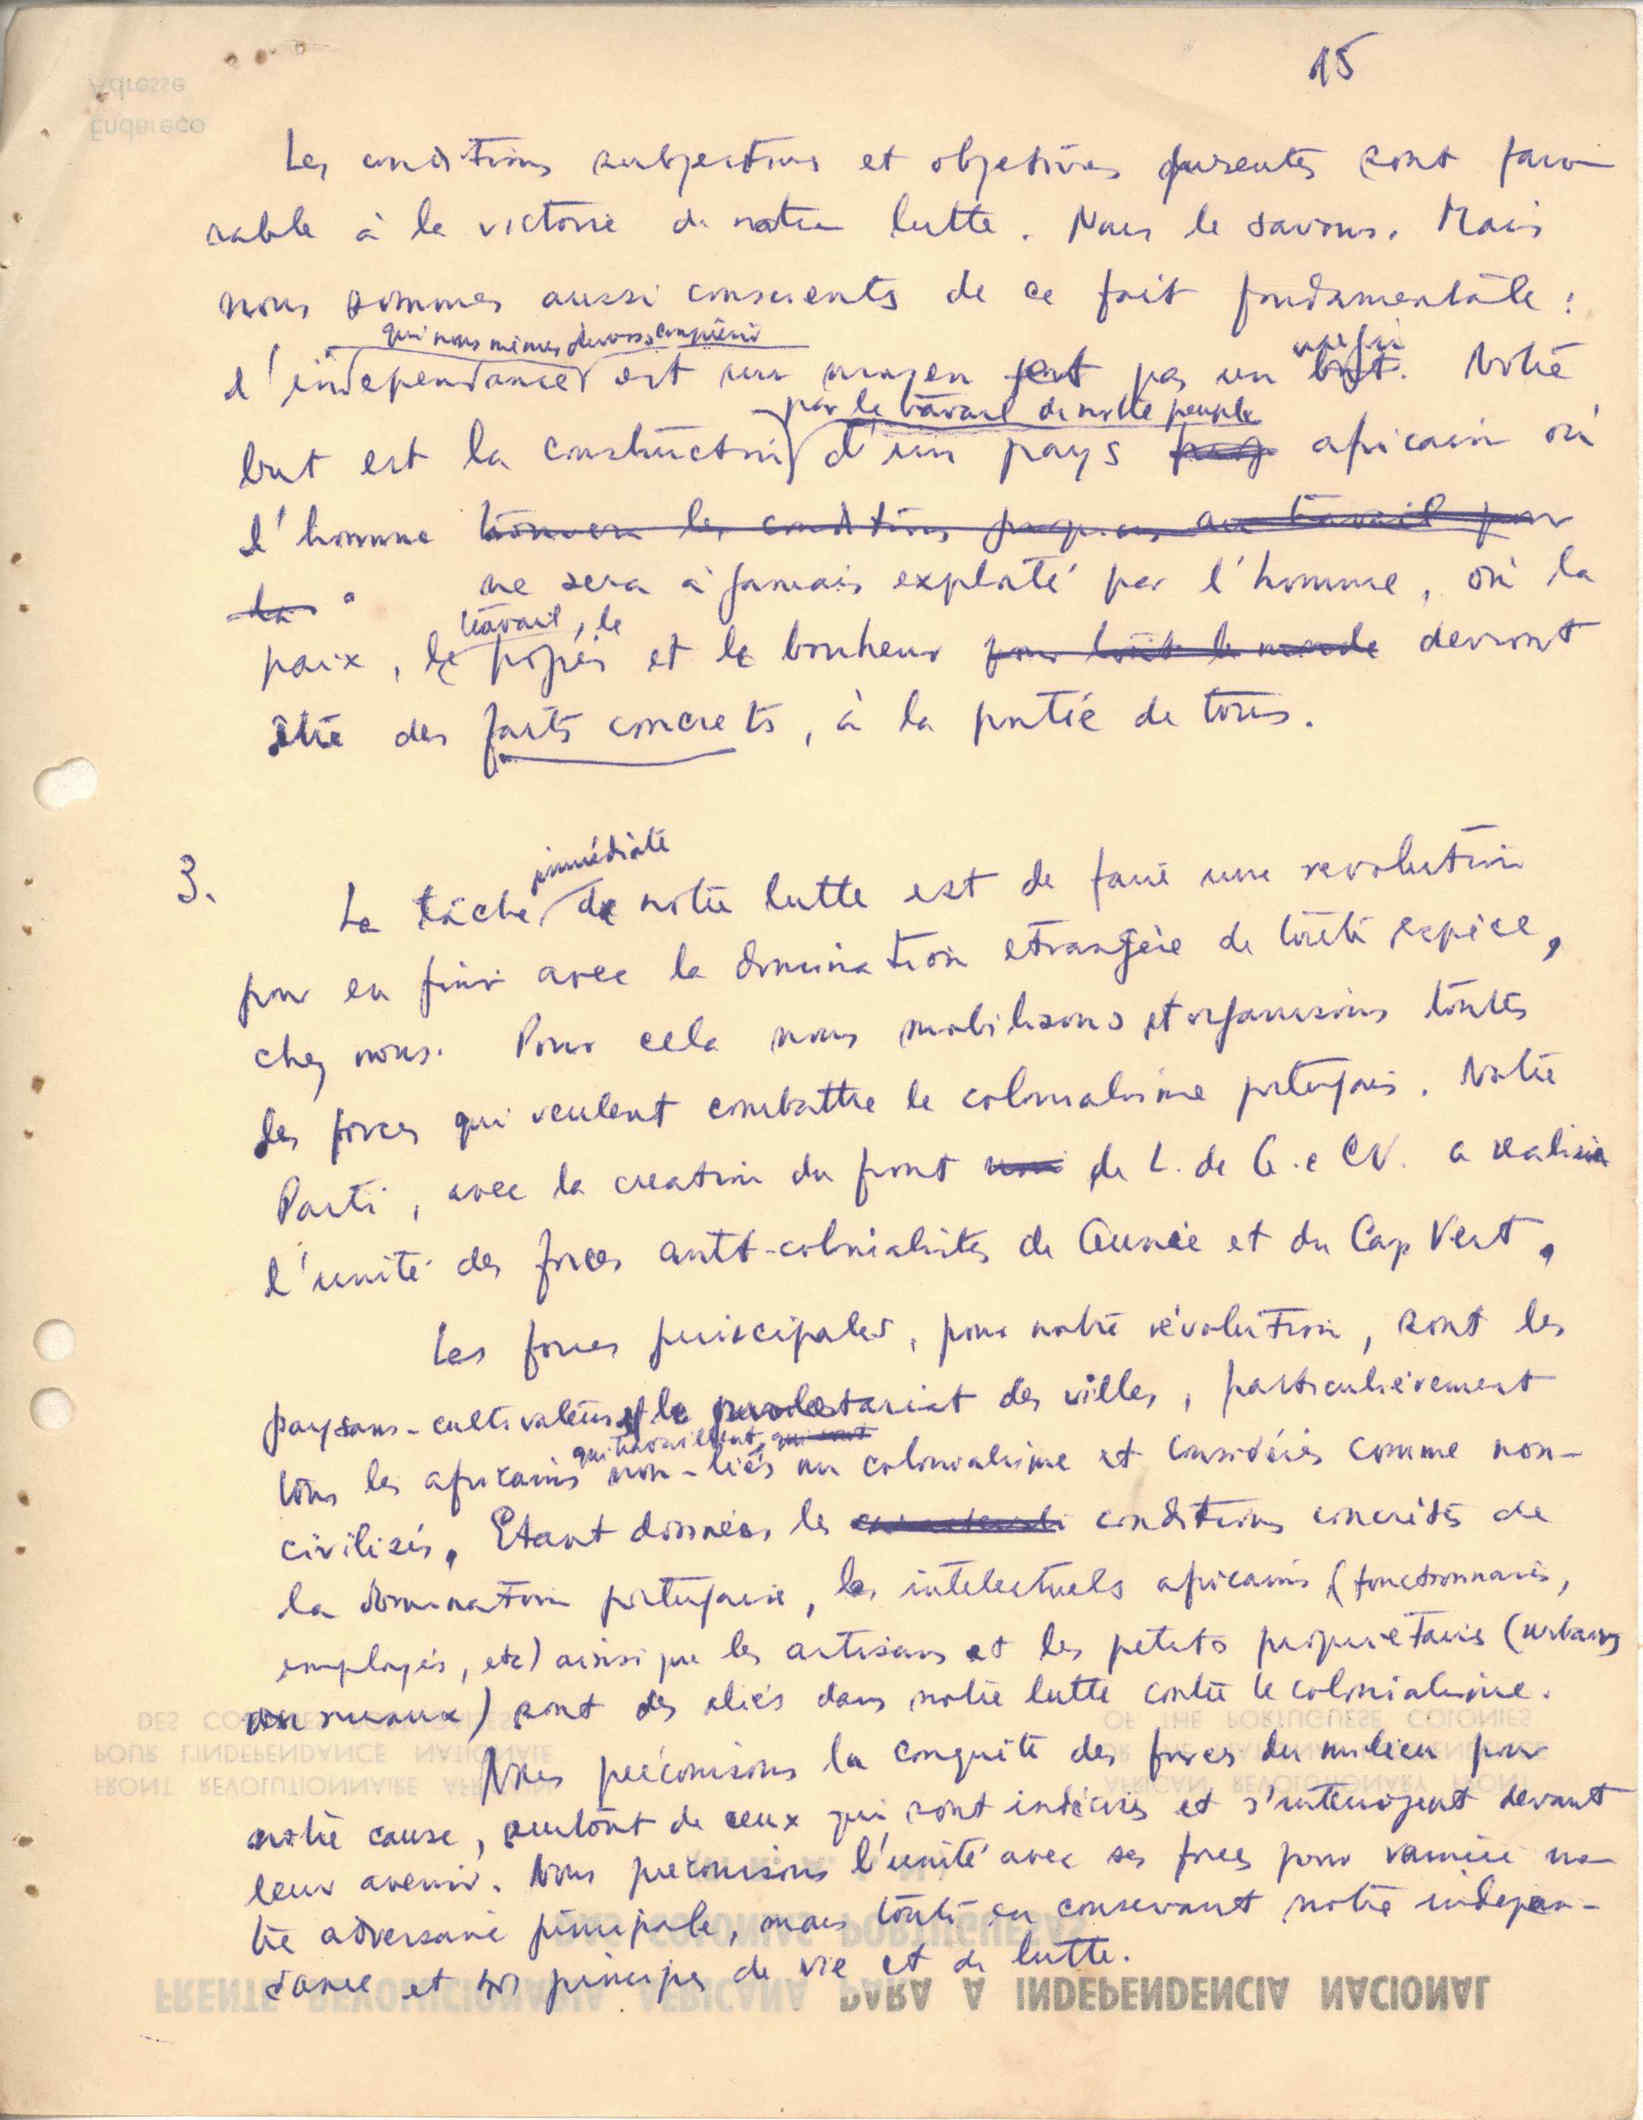 15
Les conditions subjectives et objetives presentes sont favo-
rable à la victoire de notre lutte. Nous le savons. Mais
nous sommes aussi conscients de ce fait fondamentale :
que nous mêmes devons conquérir
l'independance est un moyen pas un but. Notre
une fin
par le travail de notre peuple
but est la construction d'un pays africain où
l'homme trouvera les conditions propres au travail pour
la ne sera à jamais exploité par l'homme, où la
travail, le
paix, le progrès et le bonheur pour tout le monde devront
être des faits concrets, à la portée de tous.
immédiate
3. La tâche de notre lutte est de faire une revolution
pour en finir avec la domination etrangère de toute espèce,
chez nous. Pour cela nous mobilisons et organisons toutes
les forces qui veulent combattre le colonialisme portugais. Notre
Parti, avec la creation du front de L. de G. e CV. a realisé
l'unité des forces anti-colonialistes de Guinée et du Cap Vert.
Les forces principales, pour notre révolution, sont les
paysans-cultivateurs et le proletariat des villes, particulièrement
qui travaillent, qui sont
tous les africains non-liés au colonialisme et considérés comme non-
civilisés. Etant données les conditions concrètes de
la domination portugaise, les intelectuels africains (fonctionnaires,
employés, etc) ainsi que les artisans et les petits proprietaires (urbains
ou ruraux) sont des aliés dans notre lutte contre le colonialisme.
Nous préconisons la conquête des forces du milieu pour
notre cause, surtout de ceux qui sont indécis et s'interrogent devant
leur avenir. Nous préconisons l'unité avec ses forces pour vaincre no-
tre adversaire principale, mais tout en conservant notre indepen-
dance et nos principes de vie et de lutte.
Adresse
Endereço
DES COLONIES PORTUGAISES
POUR L'INDEPENDANCE NATIONALE
FRONT REVOLUTIONNAIRE AFRICAIN
OF THE PORTUGUESE COLONIES
FOR THE NATIONAL INDEPENDENCE
AFRICAN REVOLUTIONARY FRONT
DAS COLONIAS PORTUGUESAS
FRENTE REVOLUCIONARIA AFRICANA PARA A INDEPENDENCIA NACIONAL